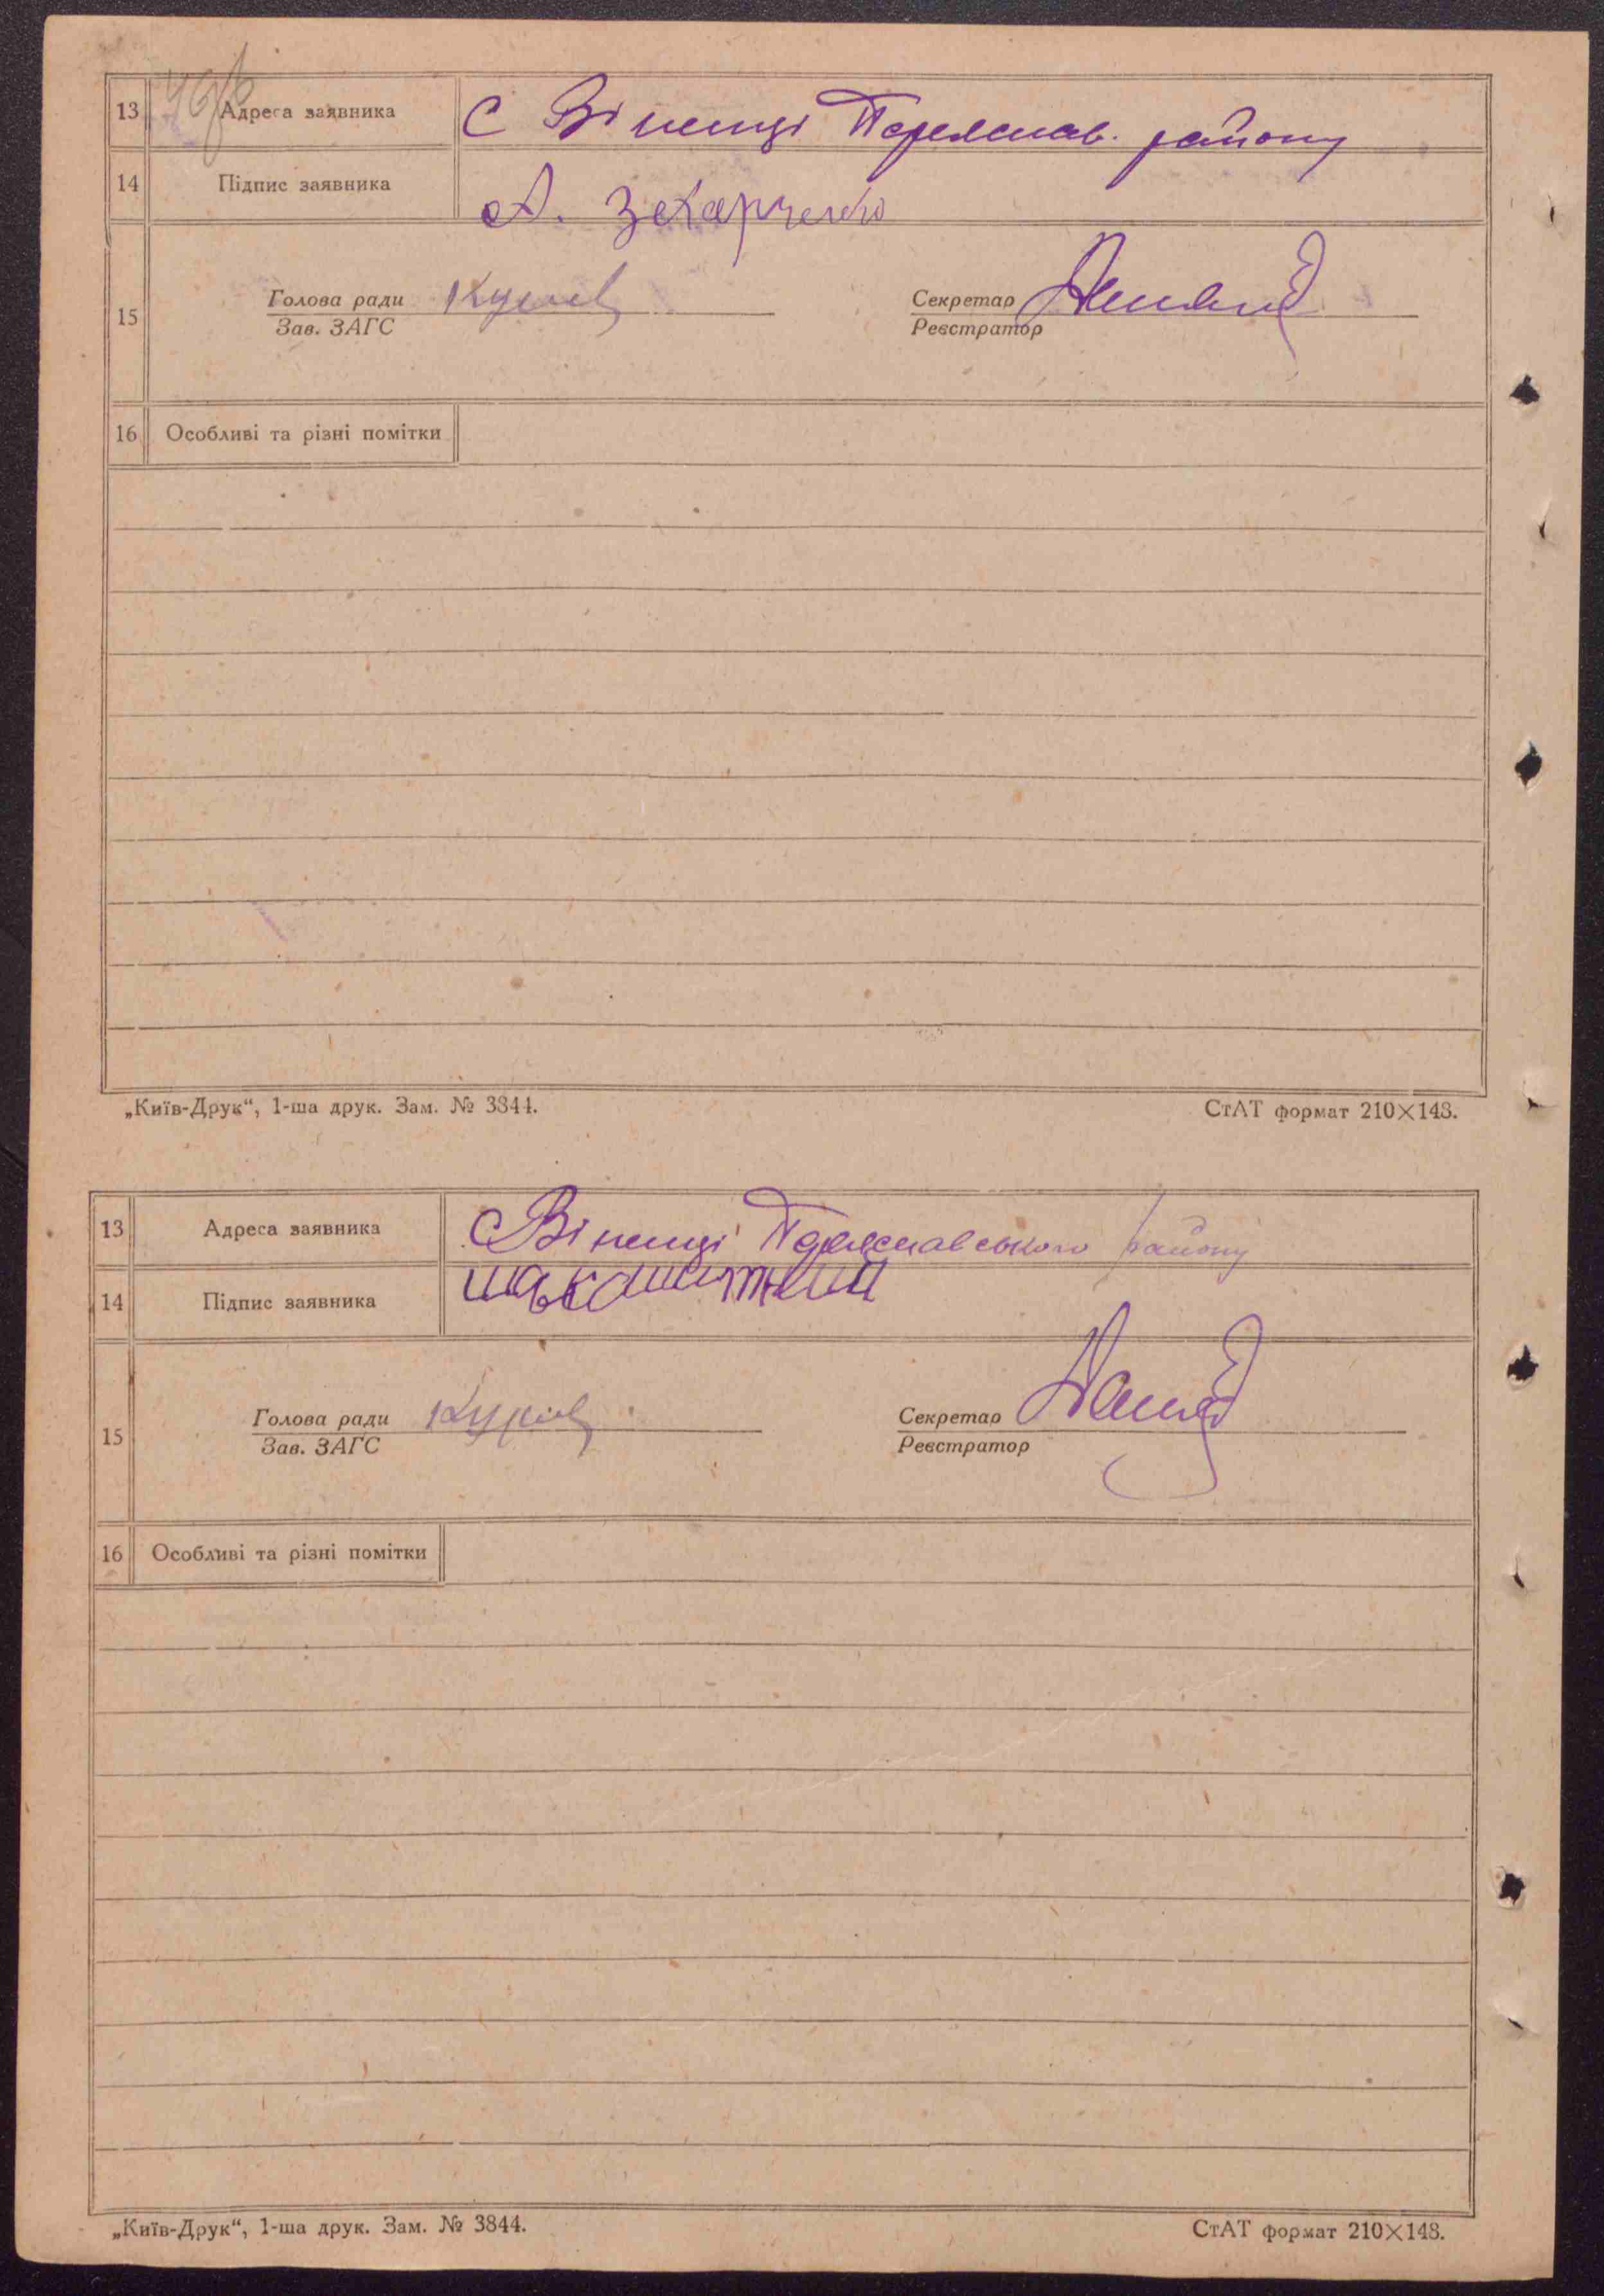 13 Адреса заявника С Віненці Переяслав. району
14 Підпис заявника А. Зехарченко
15 Голова ради Секретар
Зав. ЗАГС Реєстратор
16 Особливі та різні помітки
„Київ-Друк“, 1-ша друк. Зам. № 3844. СтАТ формат 210×148.
13 Адреса заявника С Віненці Переяславського району
14 Підпис заявника
15 Голова ради Секретар
Зав. ЗАГС Реєстратор
16 Особливі та різні помітки
„Київ-Друк“, 1-ша друк. Зам. № 3844. СтАТ формат 210×148.